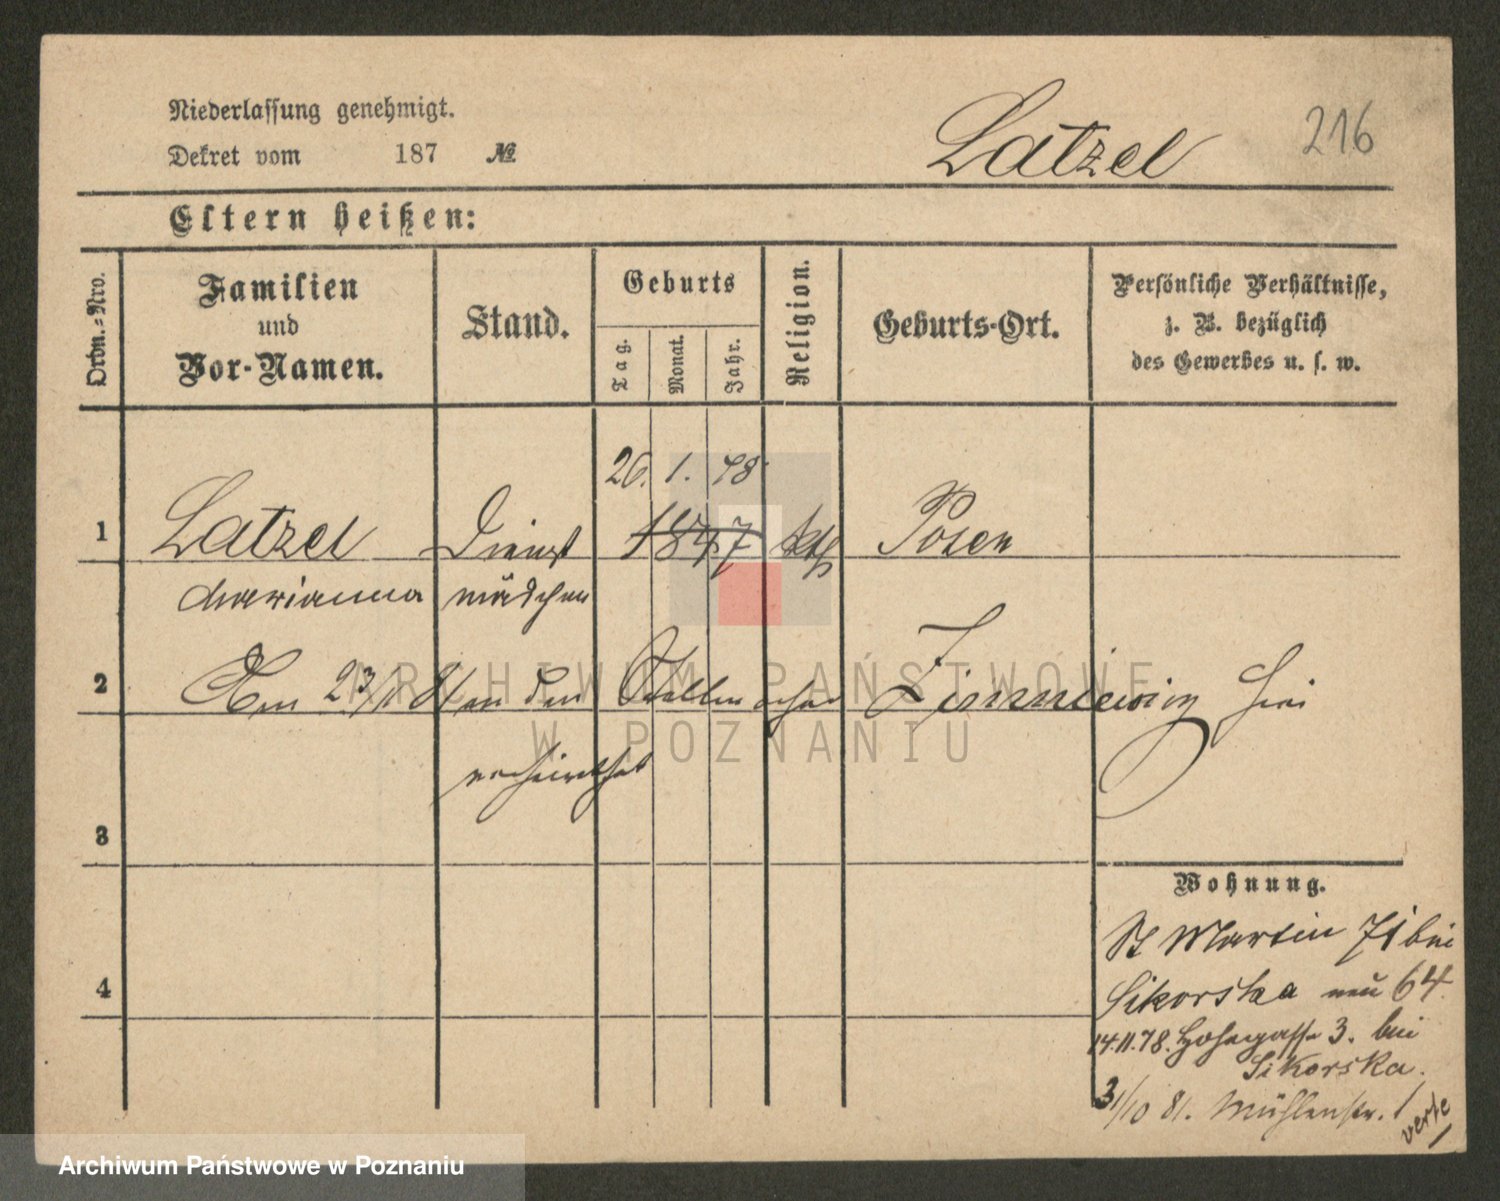 Niederlassung genehmigt.
Dekret vom 187 №
Latzel
216
Eltern heißen:
Ordn.=Nro.
Familien
und
Vor-Namen.
Stand.
Geburts
Tag.
Monat.
Jahr.
Religion.
Geburts-Ort.
Persönliche Verhältnisse,
z. B. bezüglich
des Gewerbes u. s. w.
26. 1. 48
1 Latzel Dienst 1847 kth Posen
Marianna mädchen
2 Am 23/1 81 an den Stellmacher hier
verheirathet
3
4
Wohnung.
St Martin 71 bei
Sikorska neu 64.
14.11.78. Hohegasse 3. bei
Sikorska.
31/10 81. Mühlenstr. 1
verte
ARCHIWUM PAŃSTWOWE
W POZNANIU
Archiwum Państwowe w Poznaniu